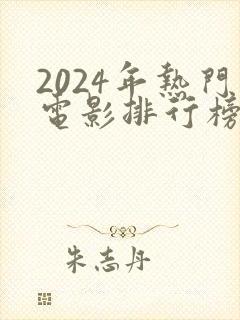 2024年热門
電影排行榜
朱志丹